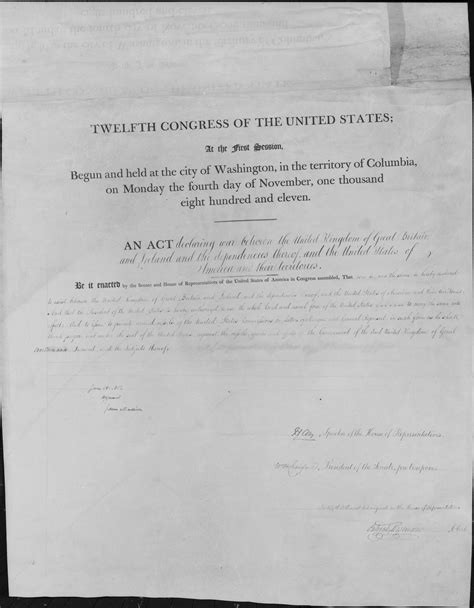 TWELFTH CONGRESS OF THE UNITED STATES;
At the First Session,
Begun and held at the city of Washington, in the territory of Columbia,
on Monday the fourth day of November, one thousand
eight hundred and eleven.
AN ACT declaring war between the United Kingdom of Great Britain
and Ireland and the dependencies thereof, and the United States of
America and their territories.
Be it enacted by the Senate and House of Representatives of the United States of America in Congress assembled, That war be and the same is hereby declared
to exist between the United Kingdom of Great Britain and Ireland and the dependencies thereof, and the United States of America and their territories
and that the President of the United States is hereby authorized to use the whole land and naval force of the United States to carry the same into
effect, and to issue to private armed vessels of the United States commissions or letters of marque and general reprisal, in such form as he shall
think proper, and under the seal of the United States, against the vessels, goods, and effects of the Government of the said United Kingdom of Great
Britain and Ireland and the subjects thereof.
June 18. 1812
Approved
James Madison
H Clay Speaker of the House of Representatives.
President of the Senate, pro tempore.
I certify that this act did originate in the House of Representatives
Clerk